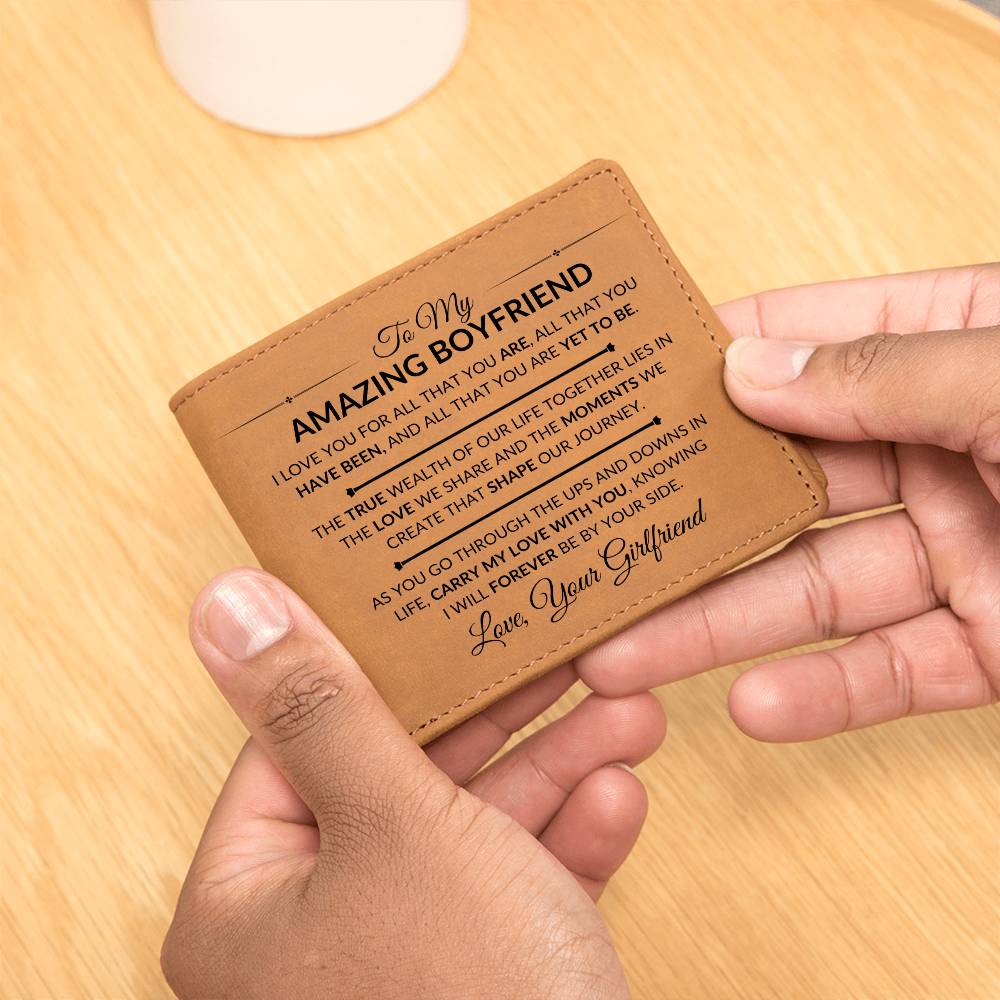 To My
AMAZING BOYFRIEND
I LOVE YOU FOR ALL THAT YOU ARE, ALL THAT YOU
HAVE BEEN, AND ALL THAT YOU ARE YET TO BE.
THE TRUE WEALTH OF OUR LIFE TOGETHER LIES IN
THE LOVE WE SHARE AND THE MOMENTS WE
CREATE THAT SHAPE OUR JOURNEY.
AS YOU GO THROUGH THE UPS AND DOWNS IN
LIFE, CARRY MY LOVE WITH YOU, KNOWING
I WILL FOREVER BE BY YOUR SIDE.
Love, Your Girlfriend